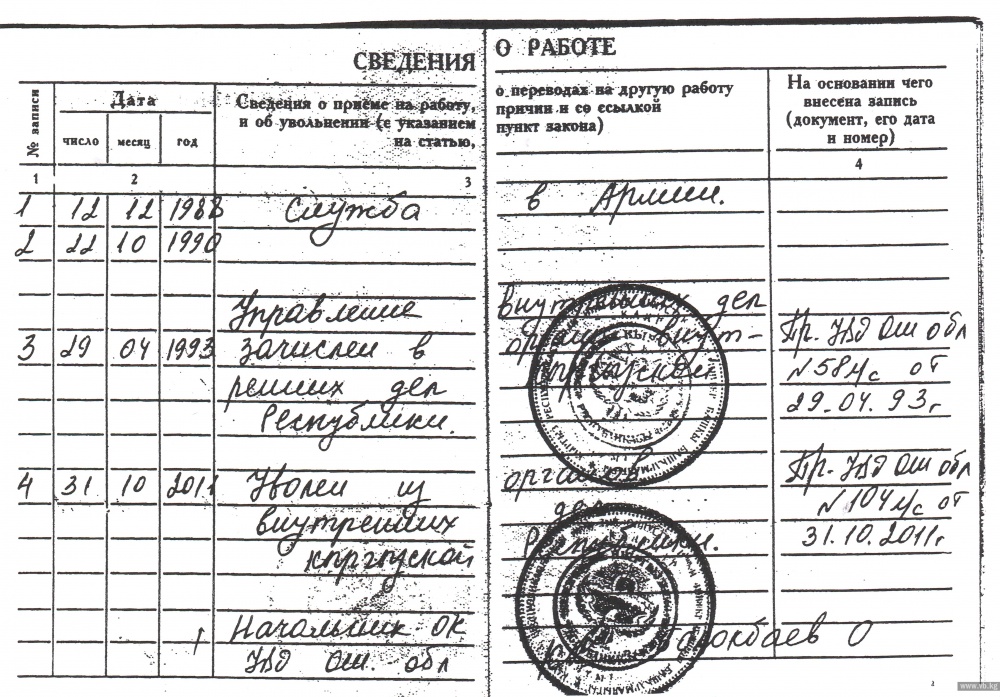 СВЕДЕНИЯ О РАБОТЕ
№ записи
Дата
число
месяц
год
Сведения о приёме на работу,
и об увольнении (с указанием
на статью,
о переводах на другую работу
причин и со ссылкой
пункт закона)
На основании чего
внесена запись
(документ, его дата
и номер)
1 2 3 4
1 12 12 1988 Служба в Армии.
2 22 10 1990
Управление внутренних дел
3 29 04 1993 зачислен в органы внут-
ренних дел
Республики.
Пр. УВД Ош обл
N 58 л/с от
29.04.93г
4 31 10 2011 Уволен из органов
внутренних дел
Республики.
Пр. УВД Ош обл
N 104 л/с от
31.10.2011г
Начальник ОК
УВД Ош. обл
О
www.vb.kg